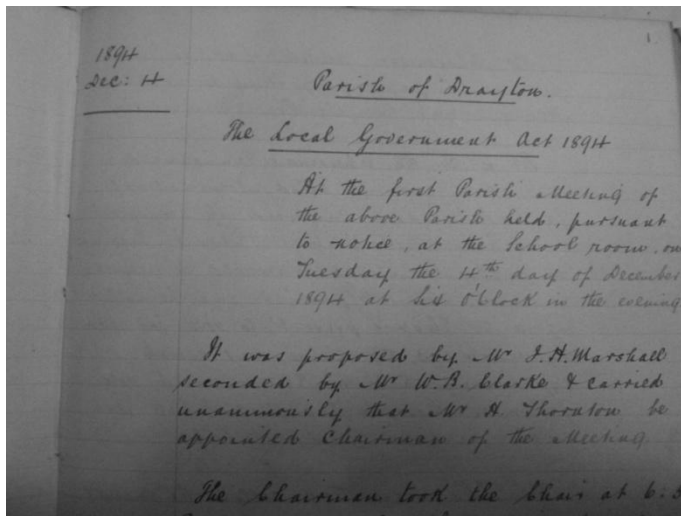 1.
1894
Dec: 4
Parish of Drayton.
The Local Government Act 1894
At the first Parish Meeting of
the above Parish held, pursuant
to notice, at the School room, on
Tuesday the 4th day of December
1894 at Six O'Clock in the evening
It was proposed by Mr J. H. Marshall
seconded by Mr W. B. Clarke & carried
unanimously that Mr H. Thornton be
appointed Chairman of the Meeting
The Chairman took the Chair at 6: